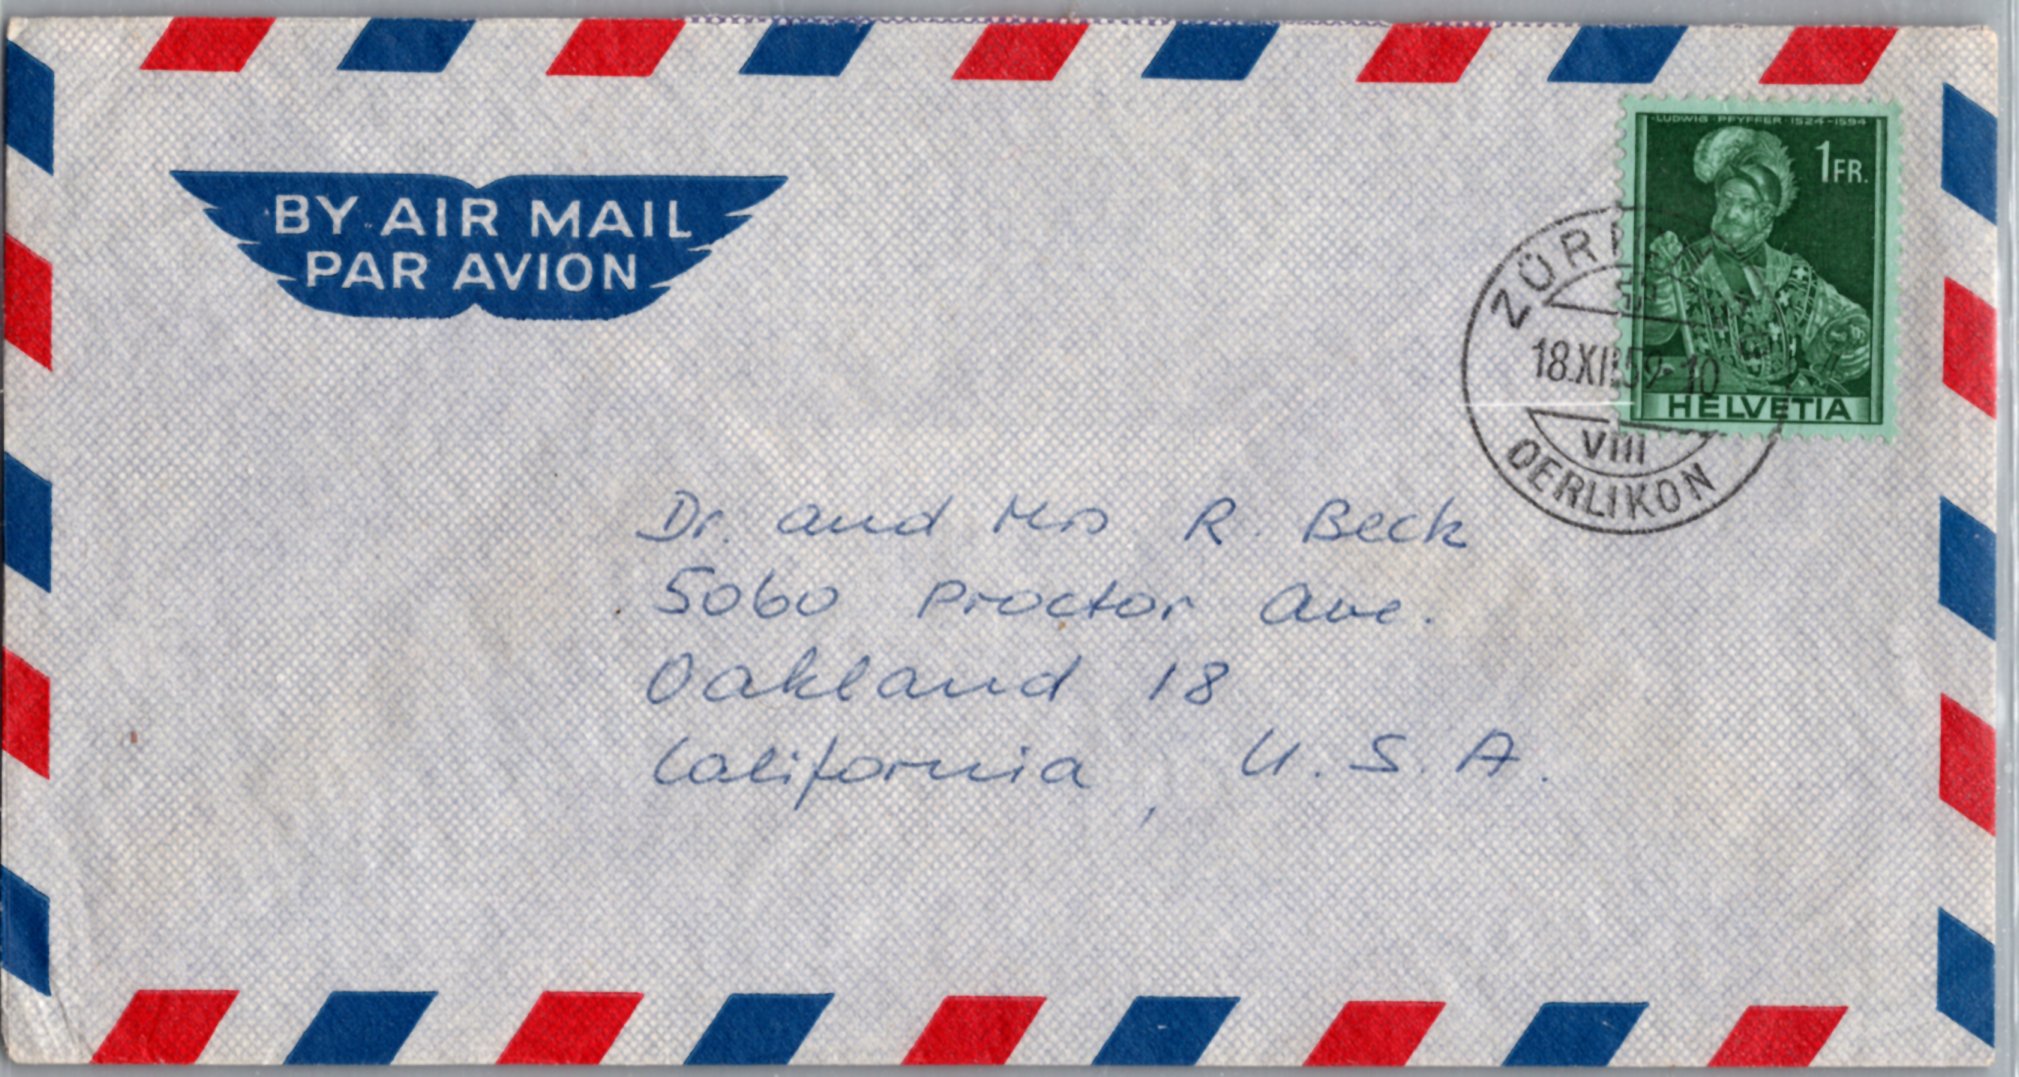 BY AIR MAIL
PAR AVION
LUDWIG PFYFFER 1524-1594
1FR.
HELVETIA
ZÜRI
18.XII.59-10
VIII
OERLIKON
Dr. and Mrs R. Beck
5060 Proctor Ave.
Oakland 18
California, U.S.A.